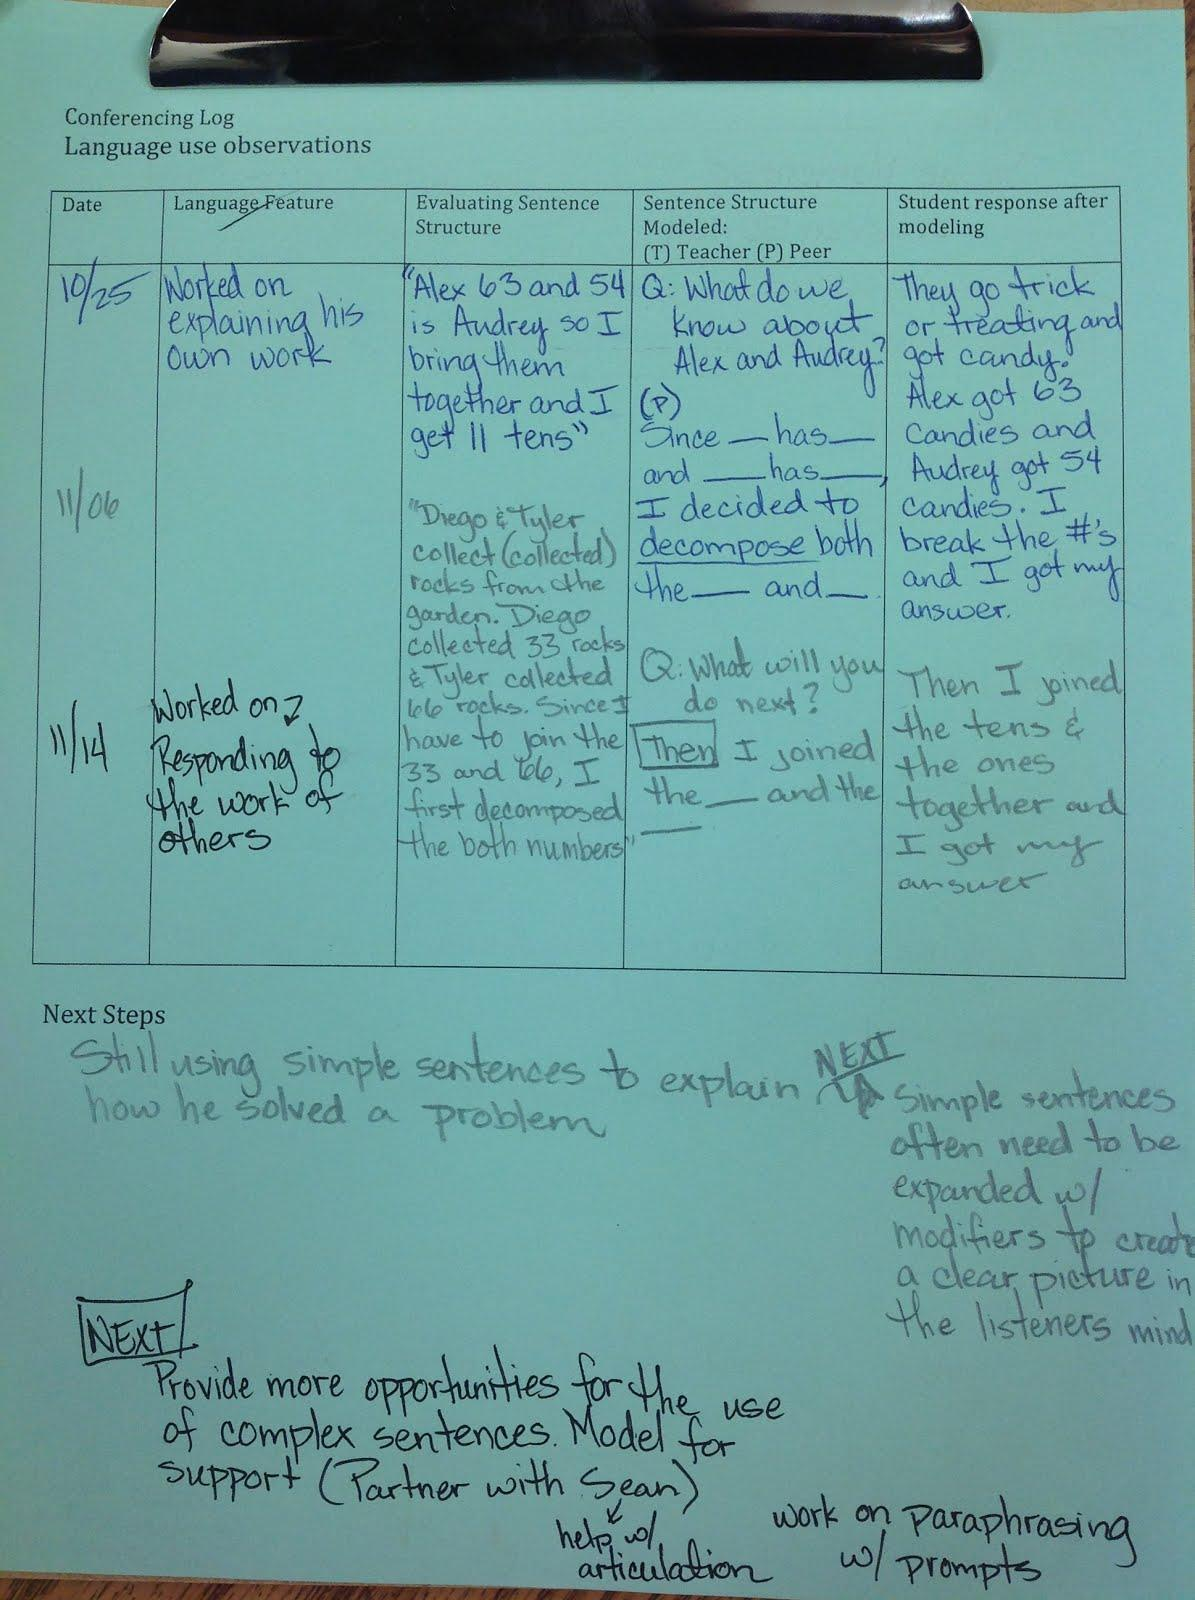 Conferencing Log
Language use observations
Date
Language Feature
Evaluating Sentence
Structure
Sentence Structure
Modeled:
(T) Teacher (P) Peer
Student response after
modeling
10/25
Worked on
explaining his
own work
"Alex 63 and 54
is Audrey so I
bring them
together and I
get 11 tens"
Q: What do we
know about
Alex and Audrey?
(P)
Since __ has __
and __ has __,
I decided to
decompose both
the __ and __.
They go trick
or treating and
got candy.
Alex got 63
candies and
Audrey got 54
candies. I
break the #'s
and I got my
answer.
11/06
"Diego & Tyler
collect (collected)
rocks from the
garden. Diego
collected 33 rocks
& Tyler collected
66 rocks. Since I
have to join the
33 and 66, I
first decomposed
the both numbers"
Q: What will you
do next?
Then I joined
the __ and the
__
Then I joined
the tens &
the ones
together and
I got my
answer
11/14
Worked on
Responding to
the work of
others
Next Steps
Still using simple sentences to explain
how he solved a problem
NEXT
Simple sentences
often need to be
expanded w/
modifiers to create
a clear picture in
the listeners mind
NEXT
Provide more opportunities for the use
of complex sentences. Model for
support (Partner with Sean)
help w/
articulation
work on paraphrasing
w/ prompts